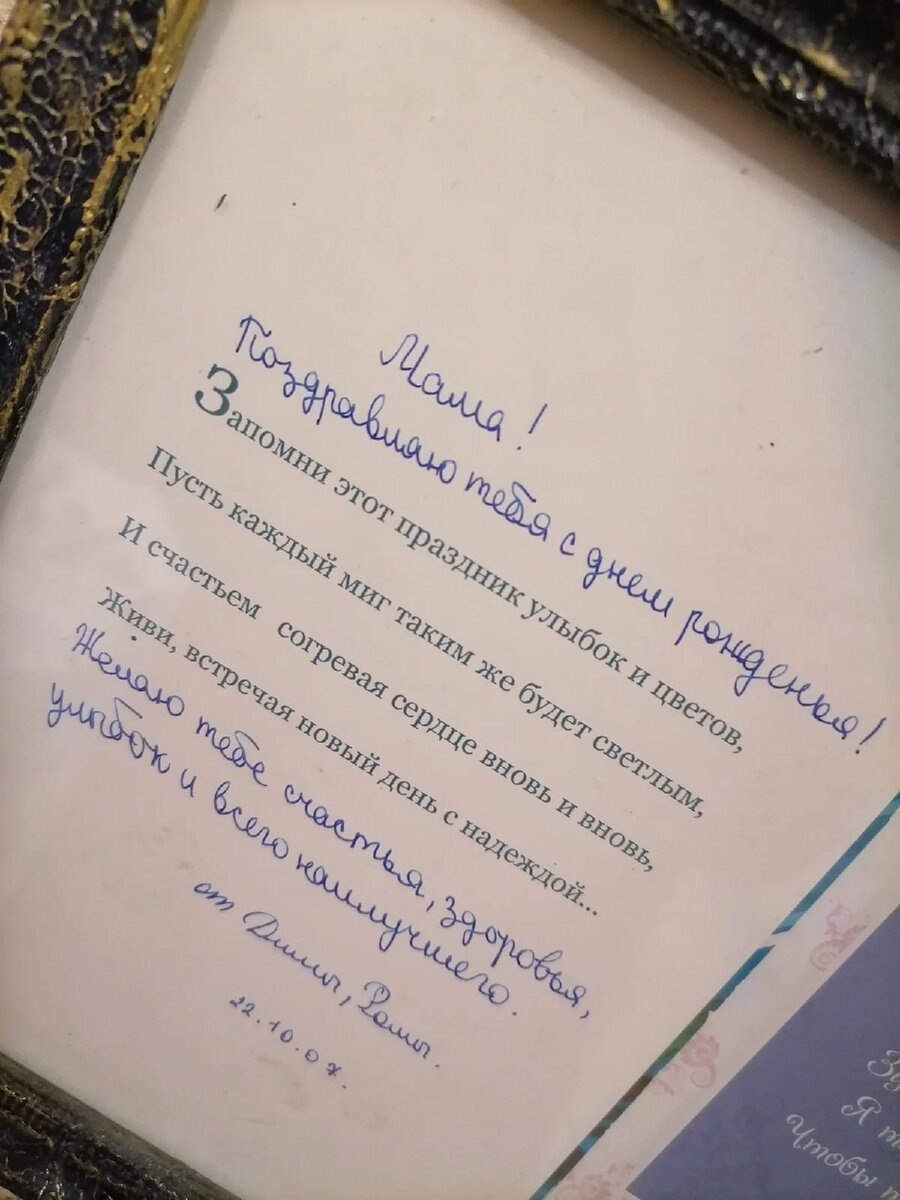 Мама!
Поздравляю тебя с днем рожденья!
Запомни этот праздник улыбок и цветов,
Пусть каждый миг таким же будет светлым,
И счастьем согревая сердце вновь и вновь,
Живи, встречая новый день с надеждой...
Желаю тебе счастья, здоровья,
улыбок и всего наилучшего.
от Димы, Ромы.
22.10.07.
Я
Чтобы